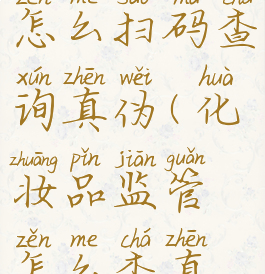 zěn me sǎo mǎ chá
怎么扫码查
xún zhēn wěi huà
询真伪(化
zhuāng pǐn jiān guǎn
妆品监管
zěn me chá zhēn
怎么查真